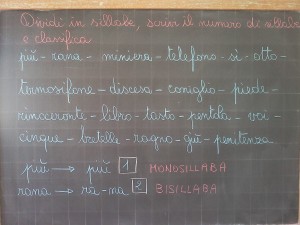 Dividi in sillabe, scrivi il numero di sillabe
e classifica
più - rana - miniera - telefono - sì - otto -
termosifone - discesa - coniglio - piede -
rinoceronte - libro - tasto - pentola - voi -
cinque - bretella - ragno - giù - penitenza
più → più 1 MONOSILLABA
rana → ra-na 2 BISILLABA